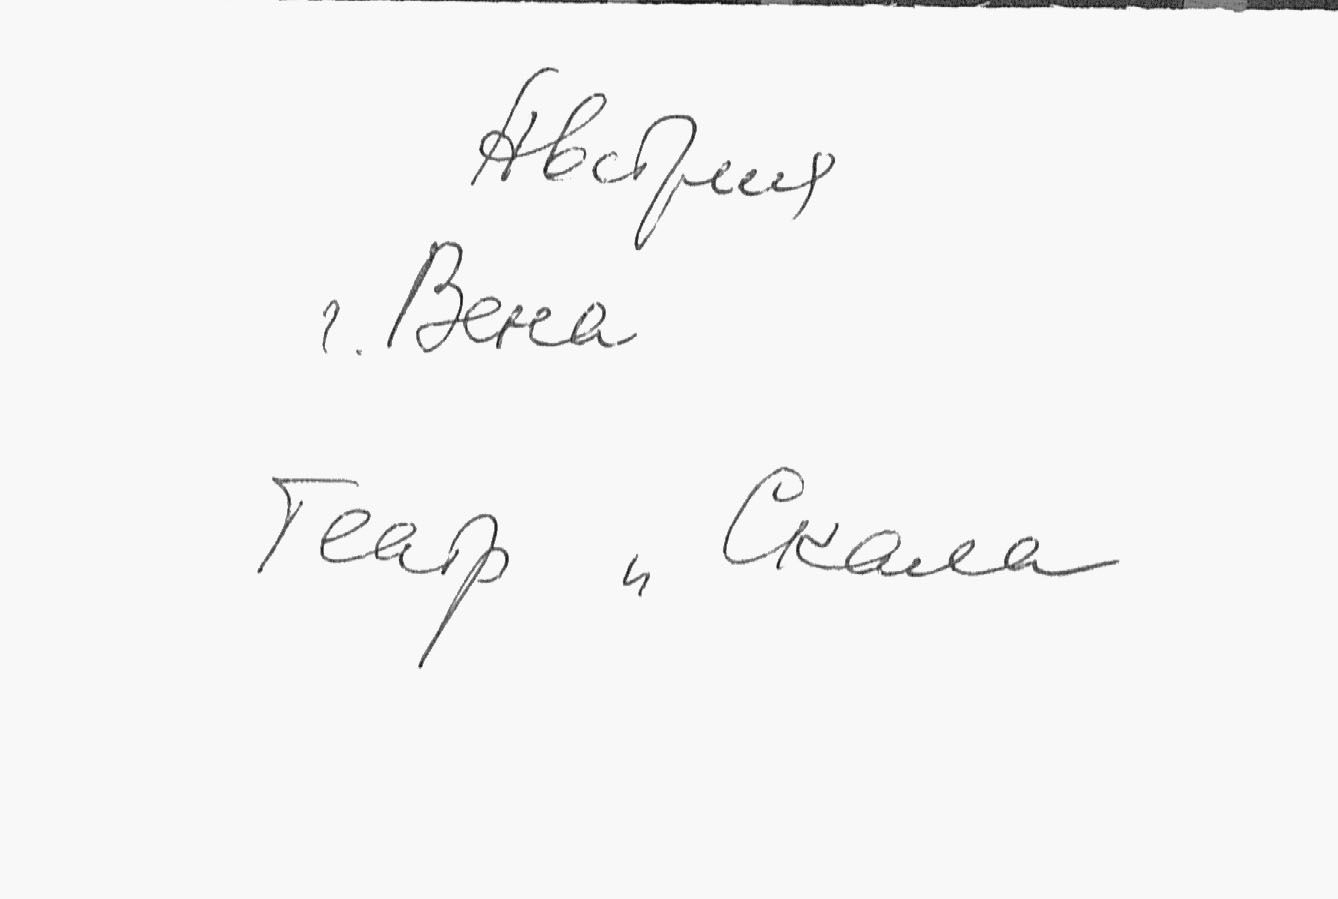 Австрия
г. Вена
Театр „ Скала